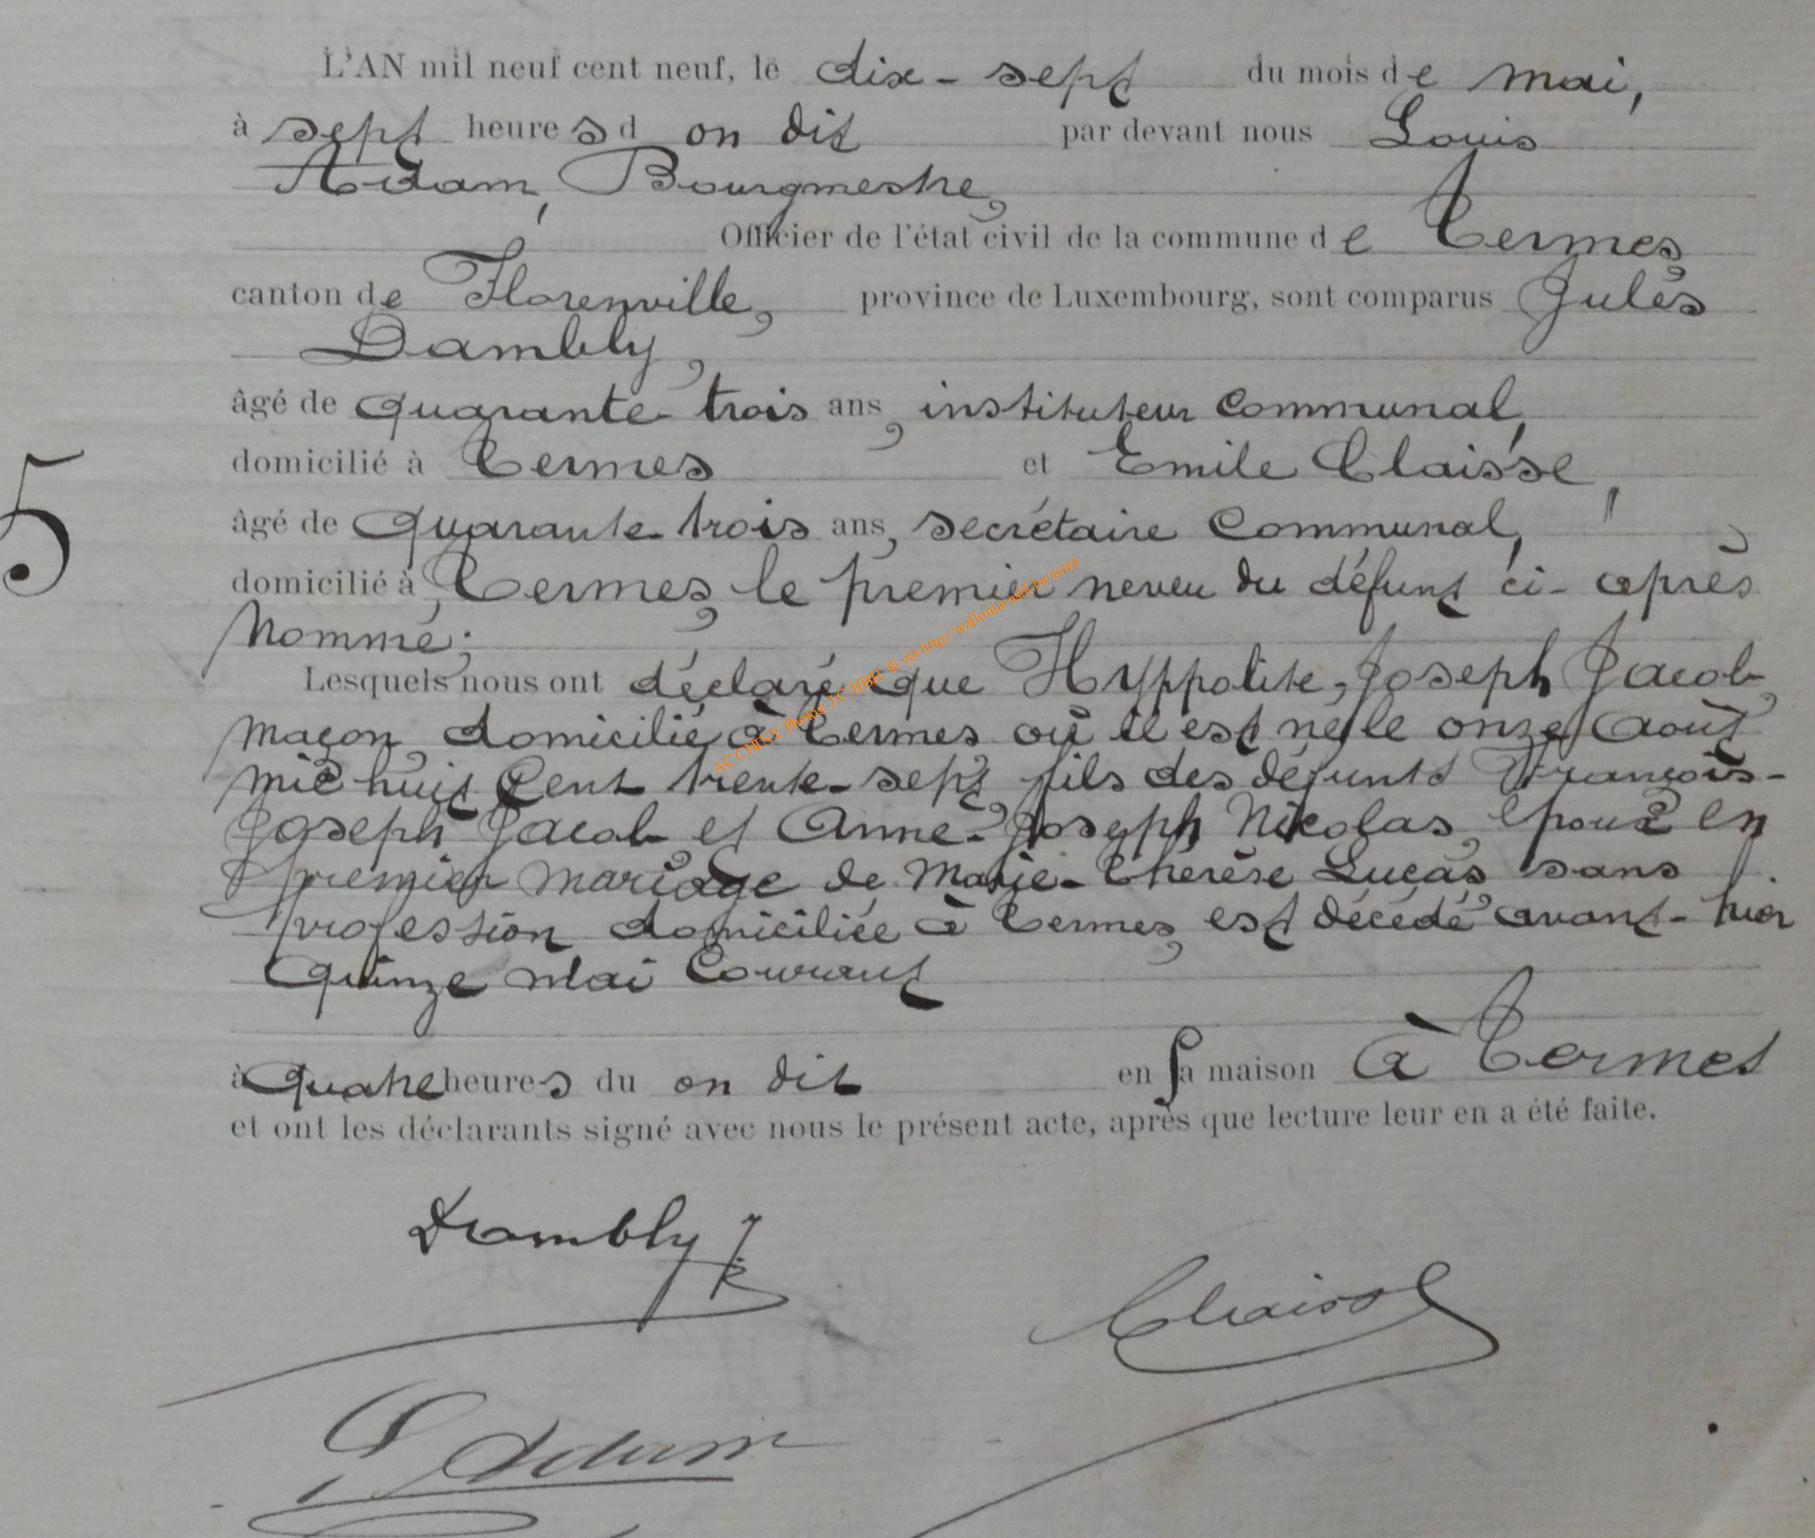 L'AN mil neuf cent neuf, le dix-sept du mois de mai,
à sept heures d on dit par devant nous Louis
Adam, Bourgmestre,
Officier de l'état civil de la commune de Termes
canton de Florenville, province de Luxembourg, sont comparus Jules
Dambly,
âgé de quarante-trois ans, instituteur communal,
domicilié à Termes et Emile Claisse,
5
âgé de quarante-trois ans, secrétaire communal,
domicilié à Termes, le premier neveu du défunt ci-après
nommé;
Lesquels nous ont déclaré que Hyppolite-Joseph Jacob,
maçon, domicilié à Termes où il est né le onze août
mil huit cent trente-sept, fils des défunts François-
Joseph Jacob et Anne-Joseph Nicolas, époux en
premier mariage de Marie-Thérèse Lucas, sans
profession domiciliée à Termes, est décédé avant-hier
quinze mai courant
à quatre heures du on dit en sa maison à Termes
et ont les déclarants signé avec nous le présent acte, après que lecture leur en a été faite.
Dambly J
Claisse
L Adam